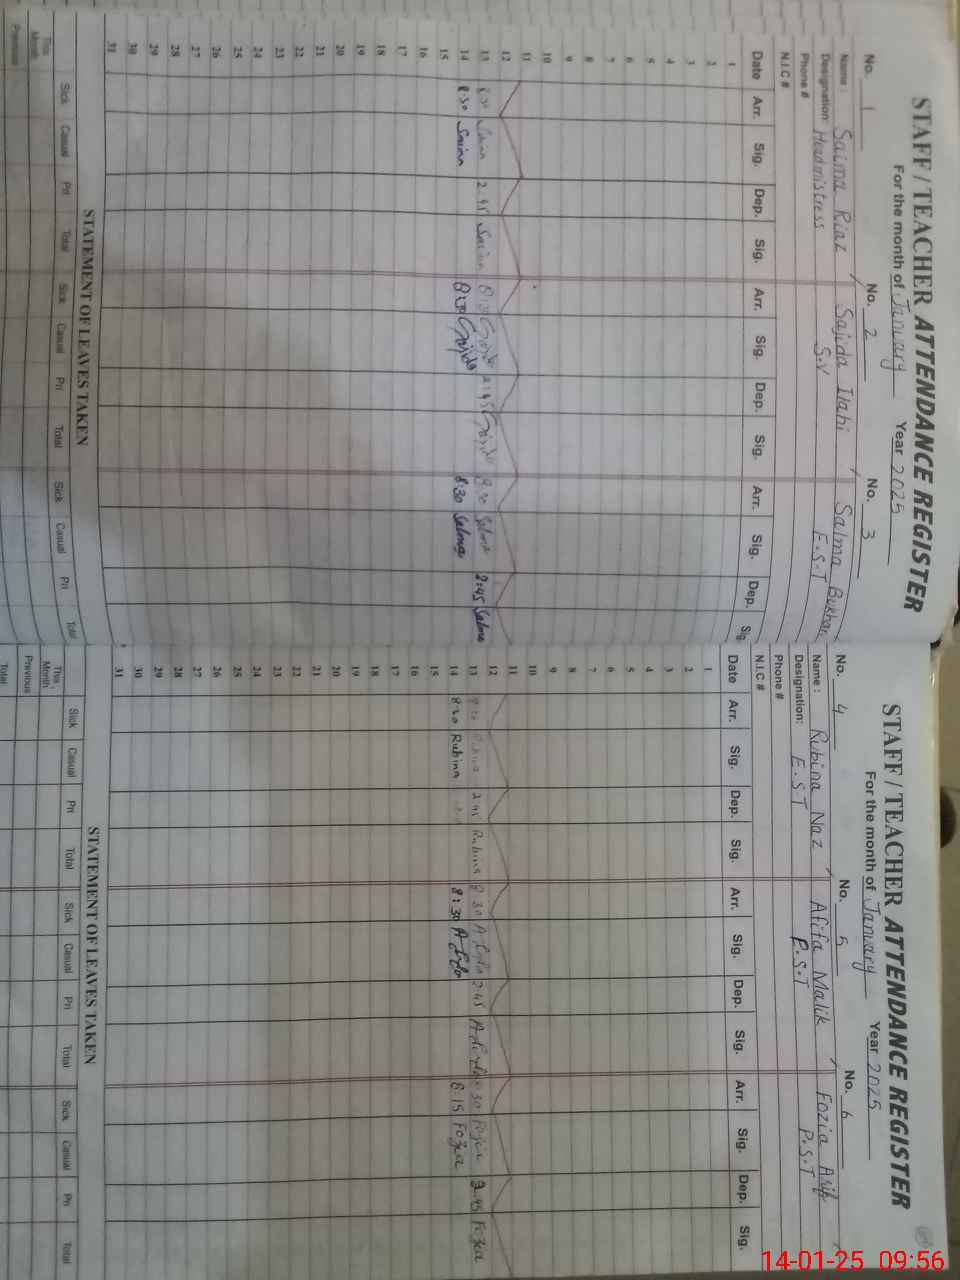 STAFF / TEACHER ATTENDANCE REGISTER
For the month of January Year 2025
No. 1 No. 2 No. 3
Name : Saima Riaz Sajida Ilahi Salma Bukhari
Designation: Headmistress S.V E.S.T
Phone #
N.I.C #
Date Arr. Sig. Dep. Sig. Arr. Sig. Dep. Sig. Arr. Sig. Dep. Sig
1
2
3
4
5
6
7
8
9
10
11
12
13 8:30 Saima 2:45 Saima 8:30 Sajida 2:45 Sajida 8:30 Salma 2:45 Salma
14 8:30 Saima 8:30 Sajida 8:30 Salma
15
16
17
18
19
20
21
22
23
24
25
26
27
28
29
30
31
STATEMENT OF LEAVES TAKEN
Sick Casual Pri Total Sick Casual Pri Total Sick Casual Pri Total
This Month
Previous
STAFF / TEACHER ATTENDANCE REGISTER
For the month of January Year 2025
No. 4 No. 5 No. 6
Name : Rubina Naz Afifa Malik Fozia Asif
Designation: E.S.T P.S.T P.S.T
Phone #
N.I.C #
Date Arr. Sig. Dep. Sig. Arr. Sig. Dep. Sig. Arr. Sig. Dep. Sig.
1
2
3
4
5
6
7
8
9
10
11
12
13 8:30 Rubina 2:45 Rubina 8:30 Afifa 2:45 Afifa 8:30 Fozia 2:45 Fozia
14 8:30 Rubina 8:30 Afifa 8:15 Fozia
15
16
17
18
19
20
21
22
23
24
25
26
27
28
29
30
31
STATEMENT OF LEAVES TAKEN
Sick Casual Pri Total Sick Casual Pri Total Sick Casual Pri Total
This Month
Previous
Total
14-01-25 09:56